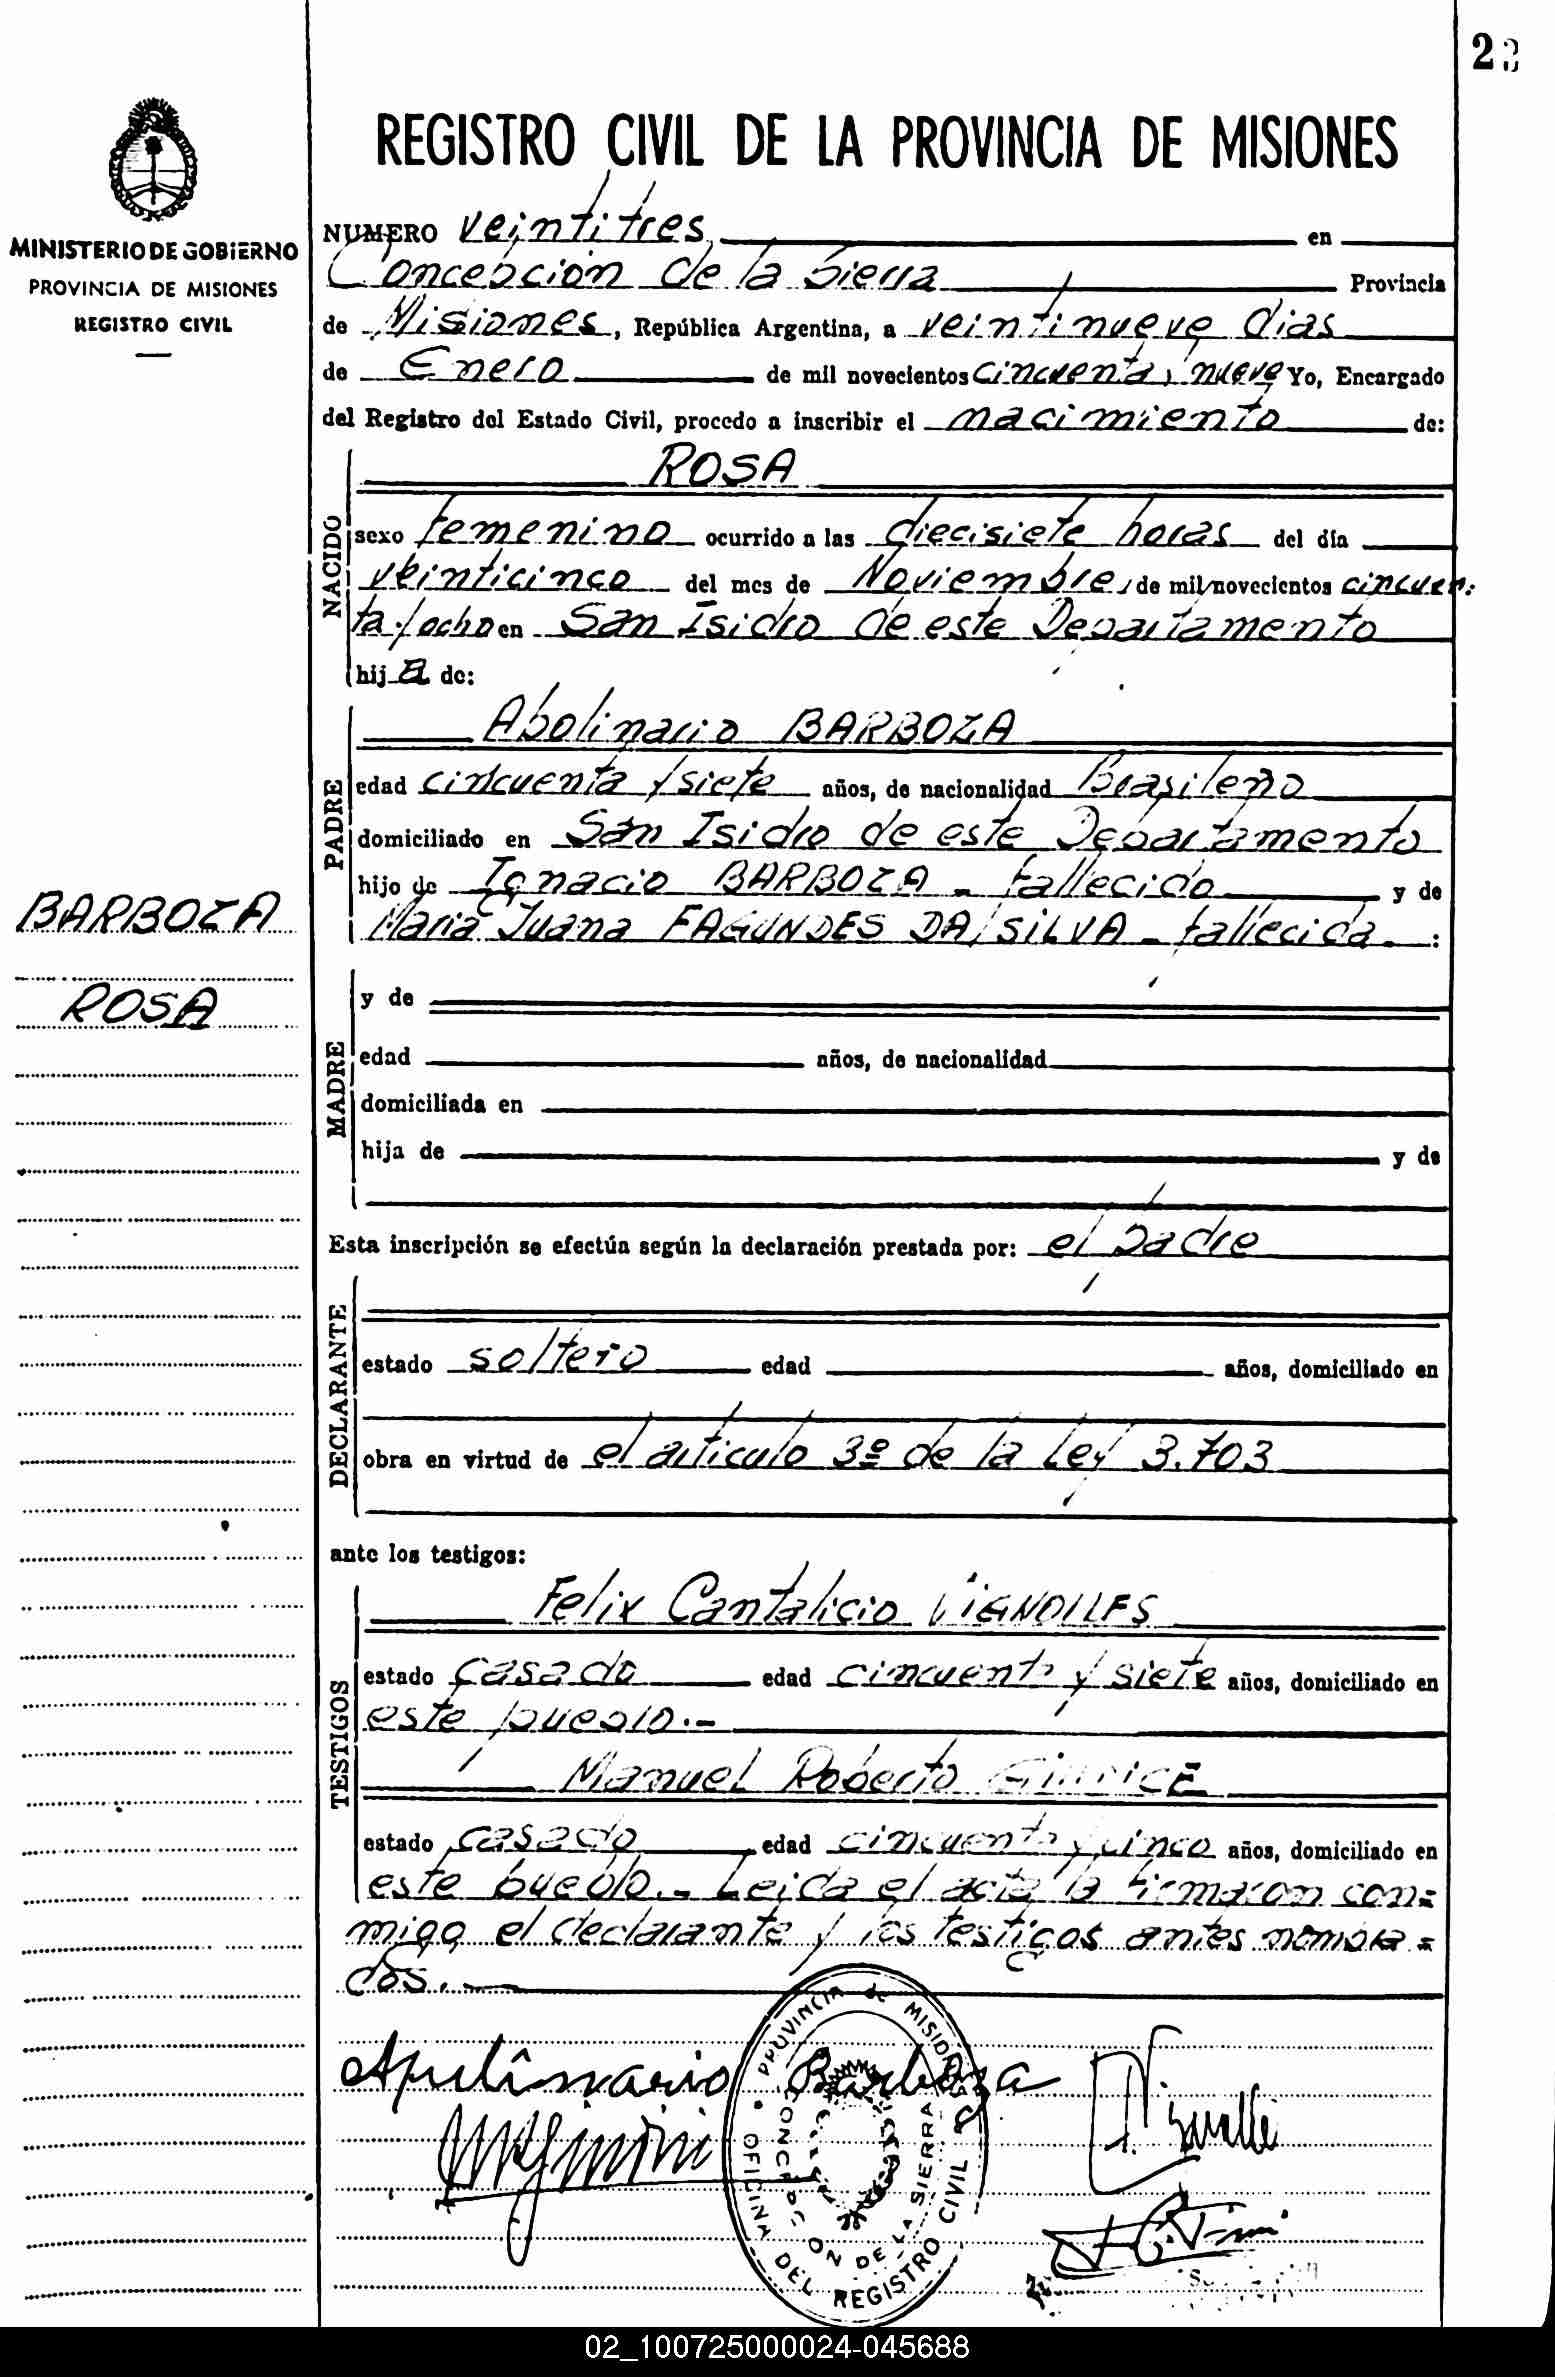 2
REGISTRO CIVIL DE LA PROVINCIA DE MISIONES
MINISTERIO DE GOBIERNO
PROVINCIA DE MISIONES
REGISTRO CIVIL
NUMERO veintitres en
Concepción de la Sierra Provincia
de Misiones, República Argentina, a veintinueve dias
de Enero de mil novecientos cincuenta y nueve Yo, Encargado
del Registro del Estado Civil, procedo a inscribir el nacimiento de:
ROSA
NACIDO
sexo femenino ocurrido a las diecisiete horas del día
veinticinco del mes de Noviembre, de mil novecientos cincuen-
ta y ocho en San Isidro de este Departamento
hija de:
Apolinario BARBOZA
PADRE
edad cincuenta y siete años, de nacionalidad Brasileño
domiciliado en San Isidro de este Departamento
hijo de Ignacio BARBOZA - fallecido y de
Maria Juana FAGUNDES DA SILVA - fallecida.
BARBOZA
ROSA
MADRE
y de
edad años, de nacionalidad
domiciliada en
hija de y de
Esta inscripción se efectúa según la declaración prestada por: el padre
DECLARANTE
estado soltero edad años, domiciliado en
obra en virtud de el articulo 3º de la Ley 3.703
ante los testigos:
Felix Cantalicio VIGNOLLES
TESTIGOS
estado casado edad cincuenta y siete años, domiciliado en
este pueblo.-
Manuel Roberto
estado casado edad cincuenta y cinco años, domiciliado en
este pueblo.- Leida el acta la firmaron con=
migo el declarante y los testigos antes nombra=
dos.-
Apulinario Barboza
PROVINCIA de MISIONES
OFICINA DEL REGISTRO CIVIL
CONCEPCION DE LA SIERRA
02_100725000024-045688